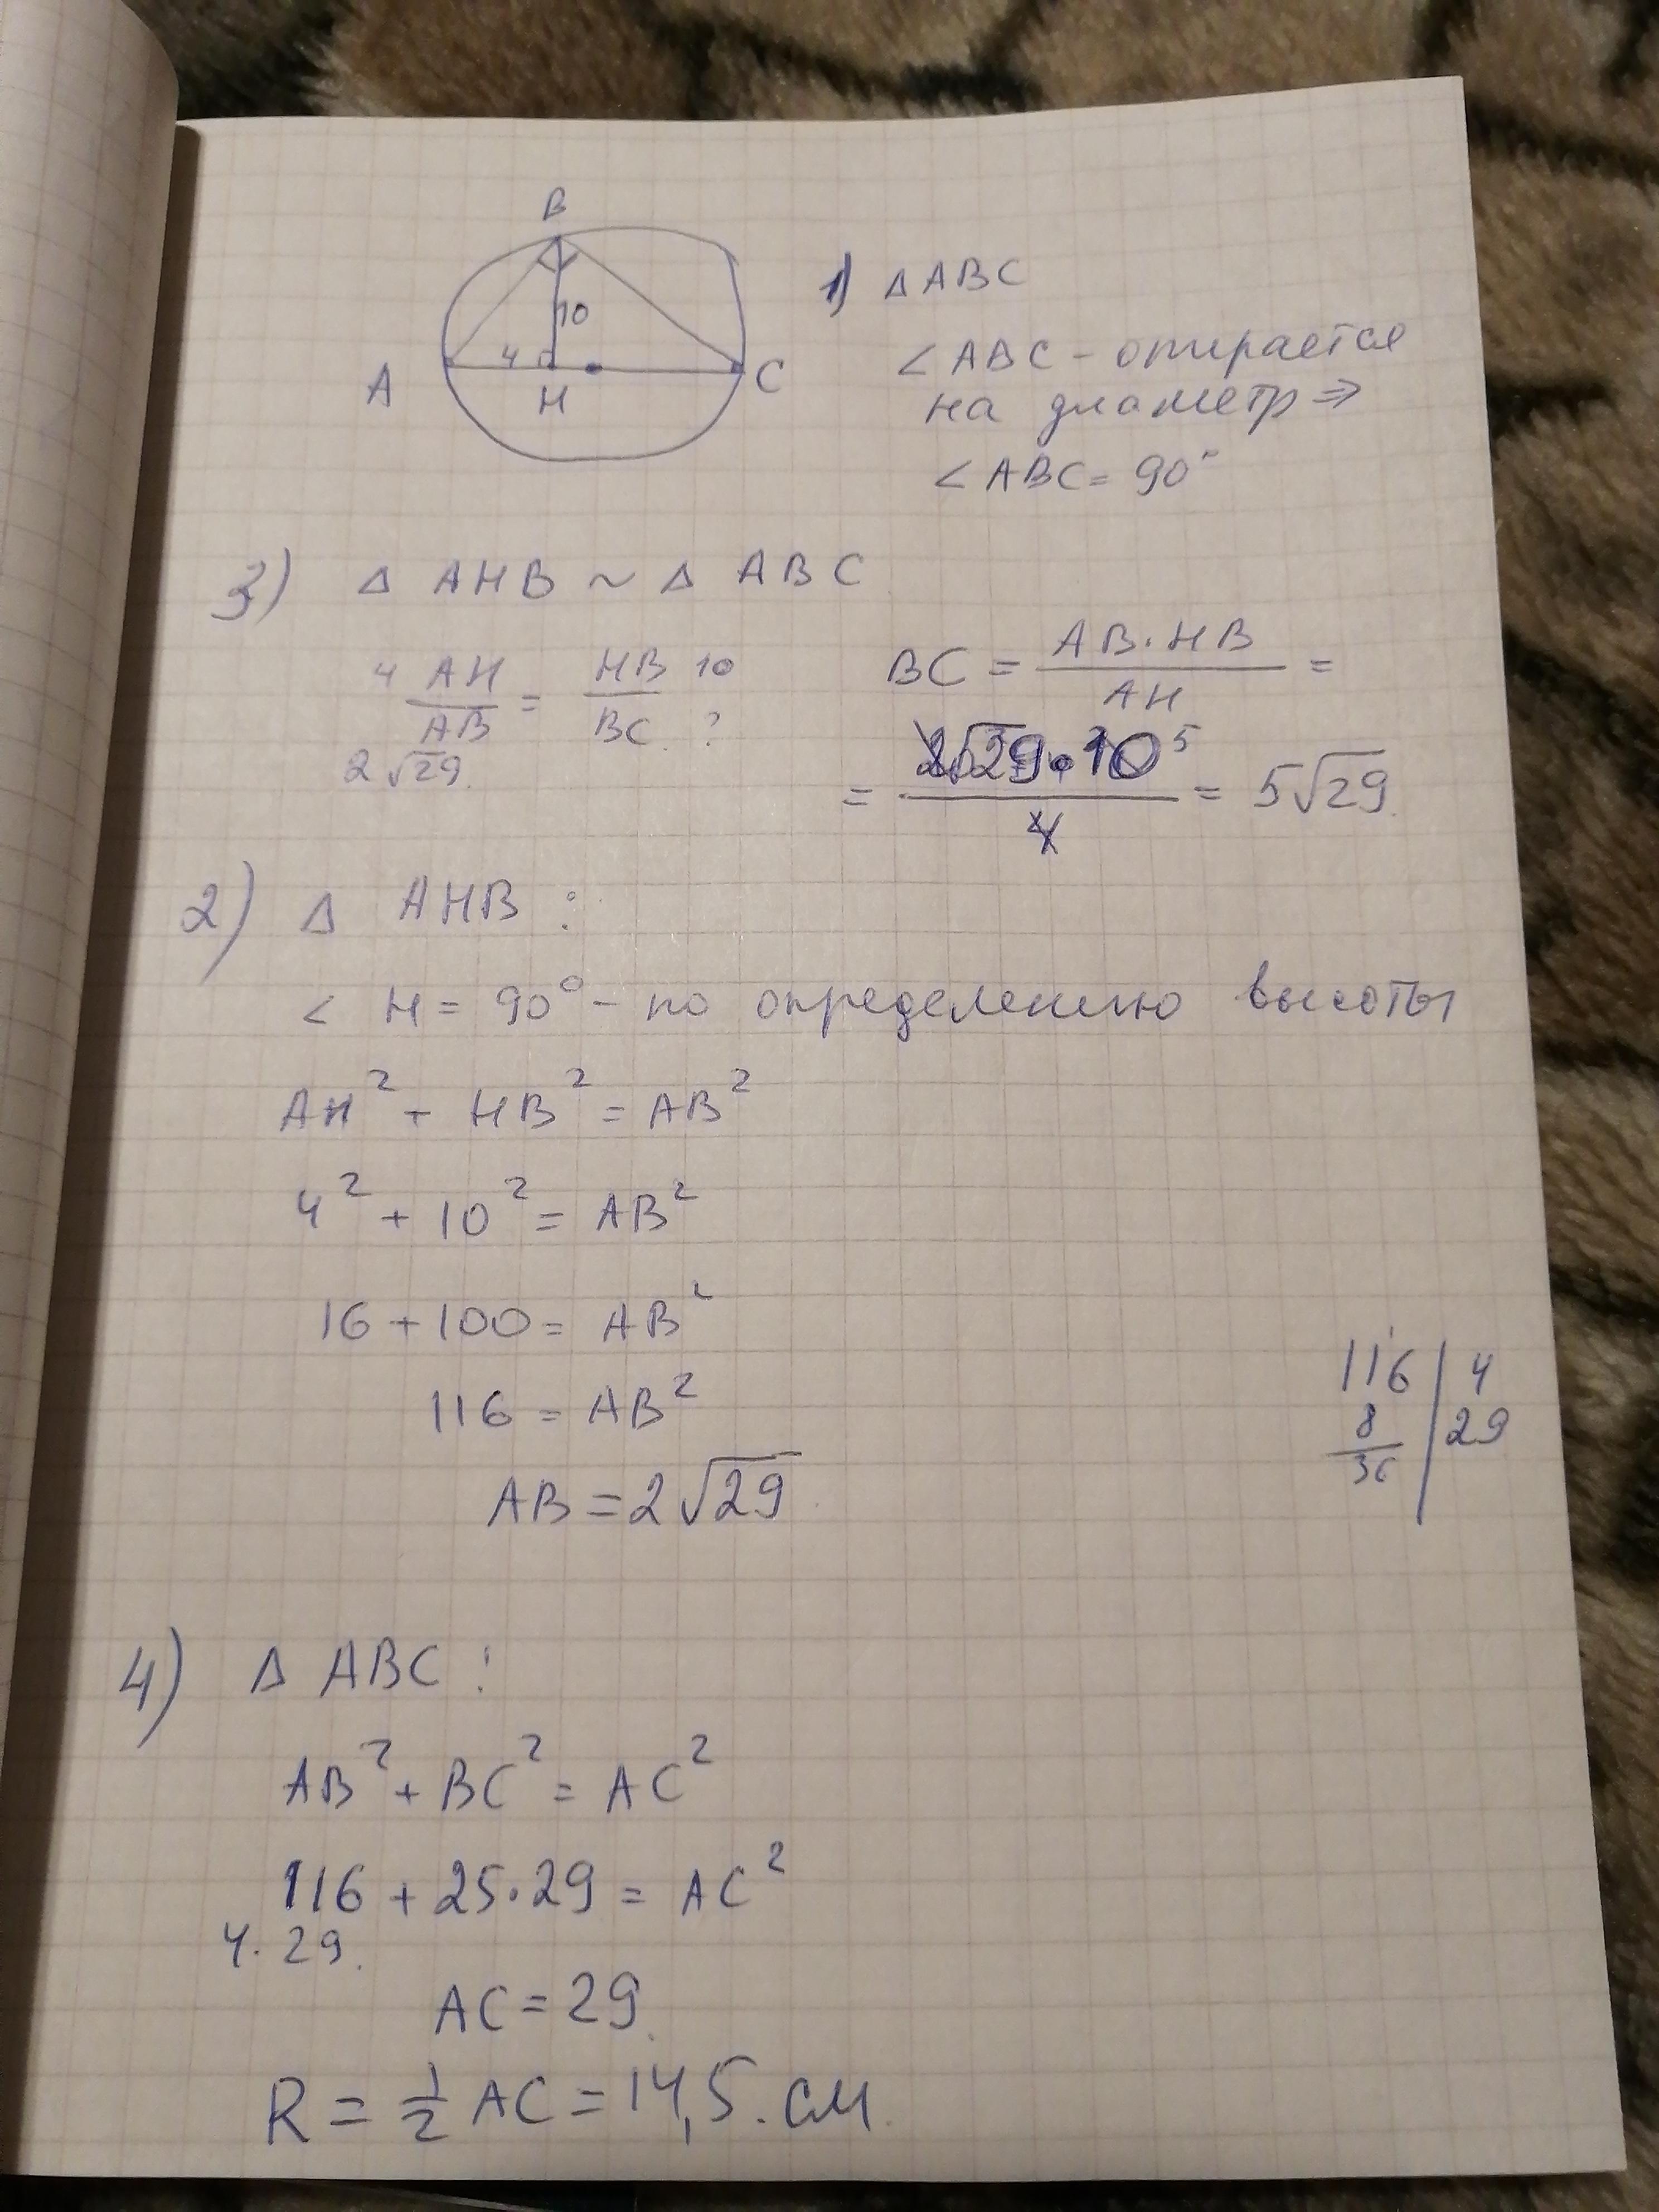 B
10
4
A
H
C
1) △ ABC
∠ABC - опирается
на диаметр ⇒
∠ABC = 90°
3) △ AHB ~ △ ABC
4 AH/AB = HB/BC 10
2√29 ?
BC = AB·HB/AH =
= 2√29·10/4 5 = 5√29
2) △ AHB :
∠ H = 90° - по определению высоты
AH² + HB² = AB²
4² + 10² = AB²
16 + 100 = AB²
116 = AB²
AB = 2√29
116 | 4
8 | 29
36
4) △ ABC :
AB² + BC² = AC²
116 + 25·29 = AC²
4·29
AC = 29
R = 1/2 AC = 14,5 см